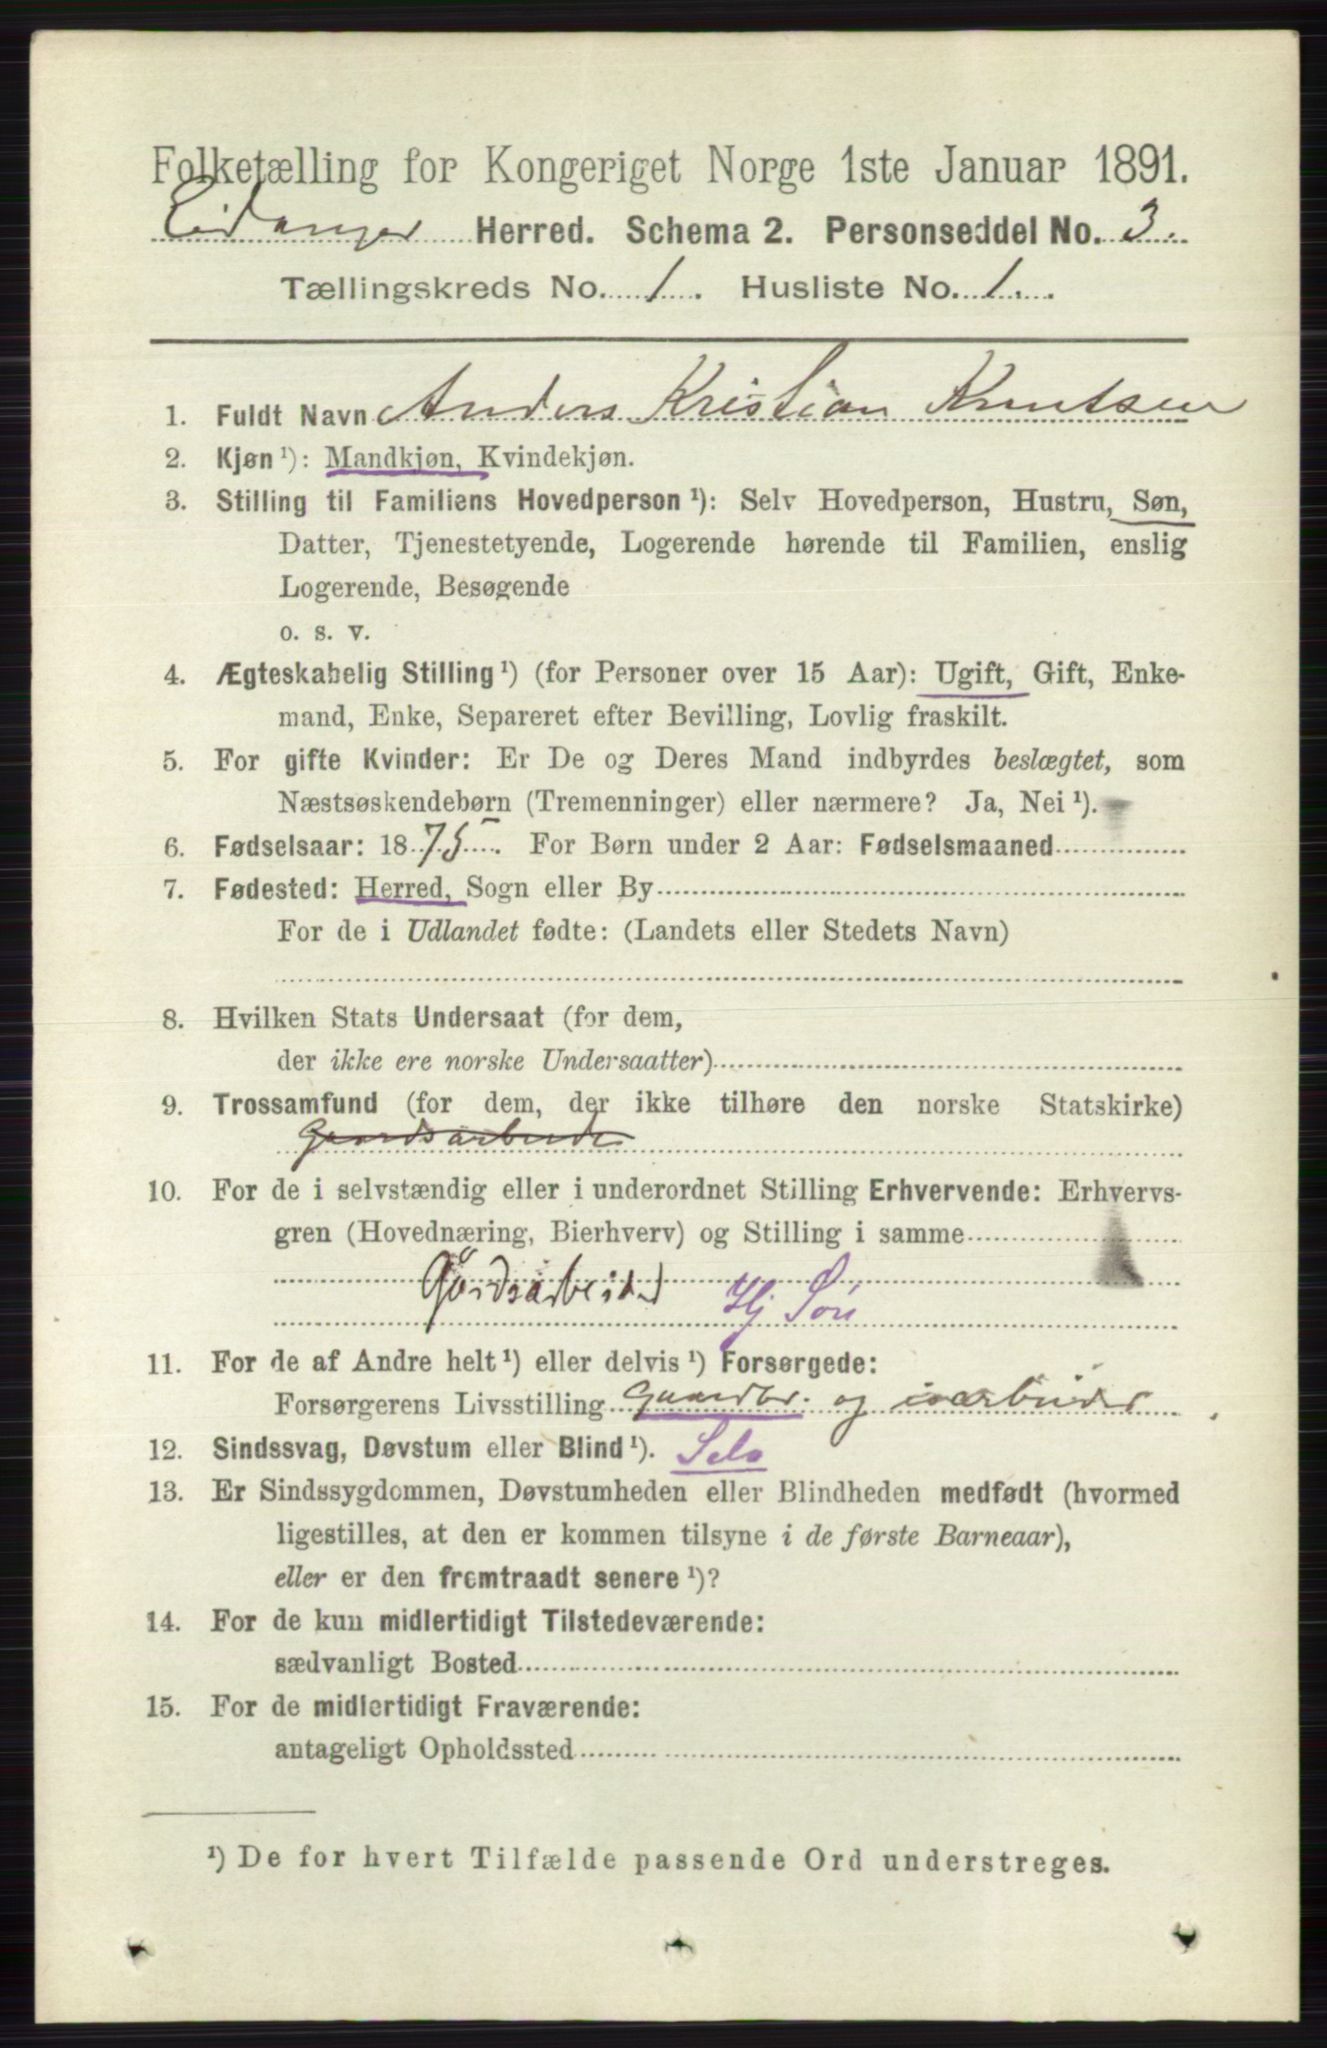 Folketælling for Kongeriget Norge 1ste Januar 1891.
Eidanger Herred. Schema 2. Personseddel No. 3.
Tællingskreds No. 1. Husliste No. 1.
1. Fuldt Navn Anders Kristian Knutsen
2. Kjøn¹): Mandkjøn, Kvindekjøn.
3. Stilling til Familiens Hovedperson¹): Selv Hovedperson, Hustru, Søn,
Datter, Tjenestetyende, Logerende hørende til Familien, enslig
Logerende, Besøgende
o. s. v.
4. Ægteskabelig Stilling¹) (for Personer over 15 Aar): Ugift, Gift, Enke-
mand, Enke, Separeret efter Bevilling, Lovlig fraskilt.
5. For gifte Kvinder: Er De og Deres Mand indbyrdes beslægtet, som
Næstsøskendebørn (Tremenninger) eller nærmere? Ja, Nei¹).
6. Fødselsaar: 1875. For Børn under 2 Aar: Fødselsmaaned
7. Fødested: Herred, Sogn eller By
For de i Udlandet fødte: (Landets eller Stedets Navn)
8. Hvilken Stats Undersaat (for dem,
der ikke ere norske Undersaatter)
9. Trossamfund (for dem, der ikke tilhøre den norske Statskirke)
Gaardsarbeider
10. For de i selvstændig eller i underordnet Stilling Erhvervende: Erhvervs-
gren (Hovednæring, Bierhverv) og Stilling i samme
Gårdsarbeider Hj Søn
11. For de af Andre helt¹) eller delvis¹) Forsørgede:
Forsørgerens Livsstilling Gaardbr. og isarbeider
12. Sindssvag, Døvstum eller Blind¹). Selv
13. Er Sindssygdommen, Døvstumheden eller Blindheden medfødt (hvormed
ligestilles, at den er kommen tilsyne i de første Barneaar),
eller er den fremtraadt senere¹)?
14. For de kun midlertidigt Tilstedeværende:
sædvanligt Bosted
15. For de midlertidigt Fraværende:
antageligt Opholdssted
¹) De for hvert Tilfælde passende Ord understreges.